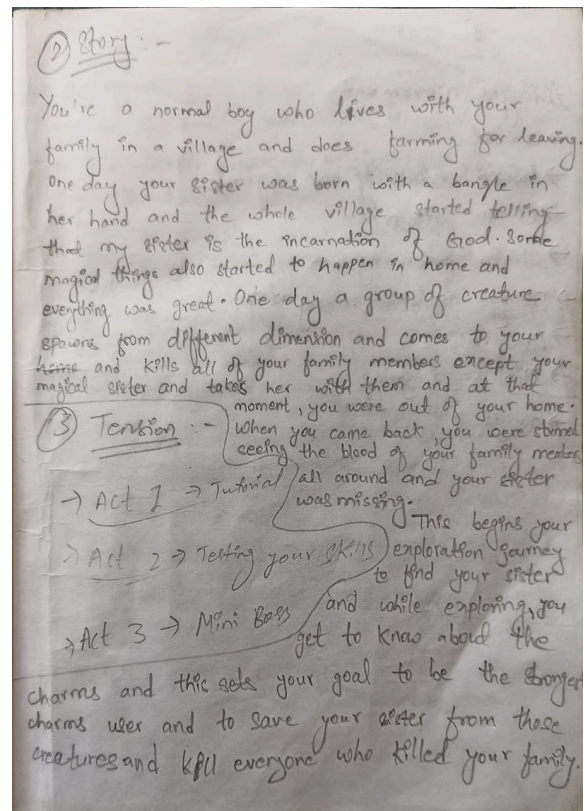 ② Story :-
You're a normal boy who lives with your
family in a village and does farming for leaving.
One day your sister was born with a bangle in
her hand and the whole village started telling
that my sister is the incarnation of God. Some
magical things also started to happen in home and
everything was great. One day a group of creature
spawns from different dimension and comes to your
home and kills all of your family members except your
magical sister and takes her with them and at that
moment, you were out of your home.
When you came back, you were stunned
seeing the blood of your family members
all around and your sister
was missing.
This begins your
exploration journey
to find your sister
and while exploring, you
get to know about the
charms and this sets your goal to be the stronger
charms user and to save your sister from those
creatures and kill everyone who killed your family.
③ Tension :-
→ Act 1 → Tutorial
→ Act 2 → Testing your skills
→ Act 3 → Mini Boss